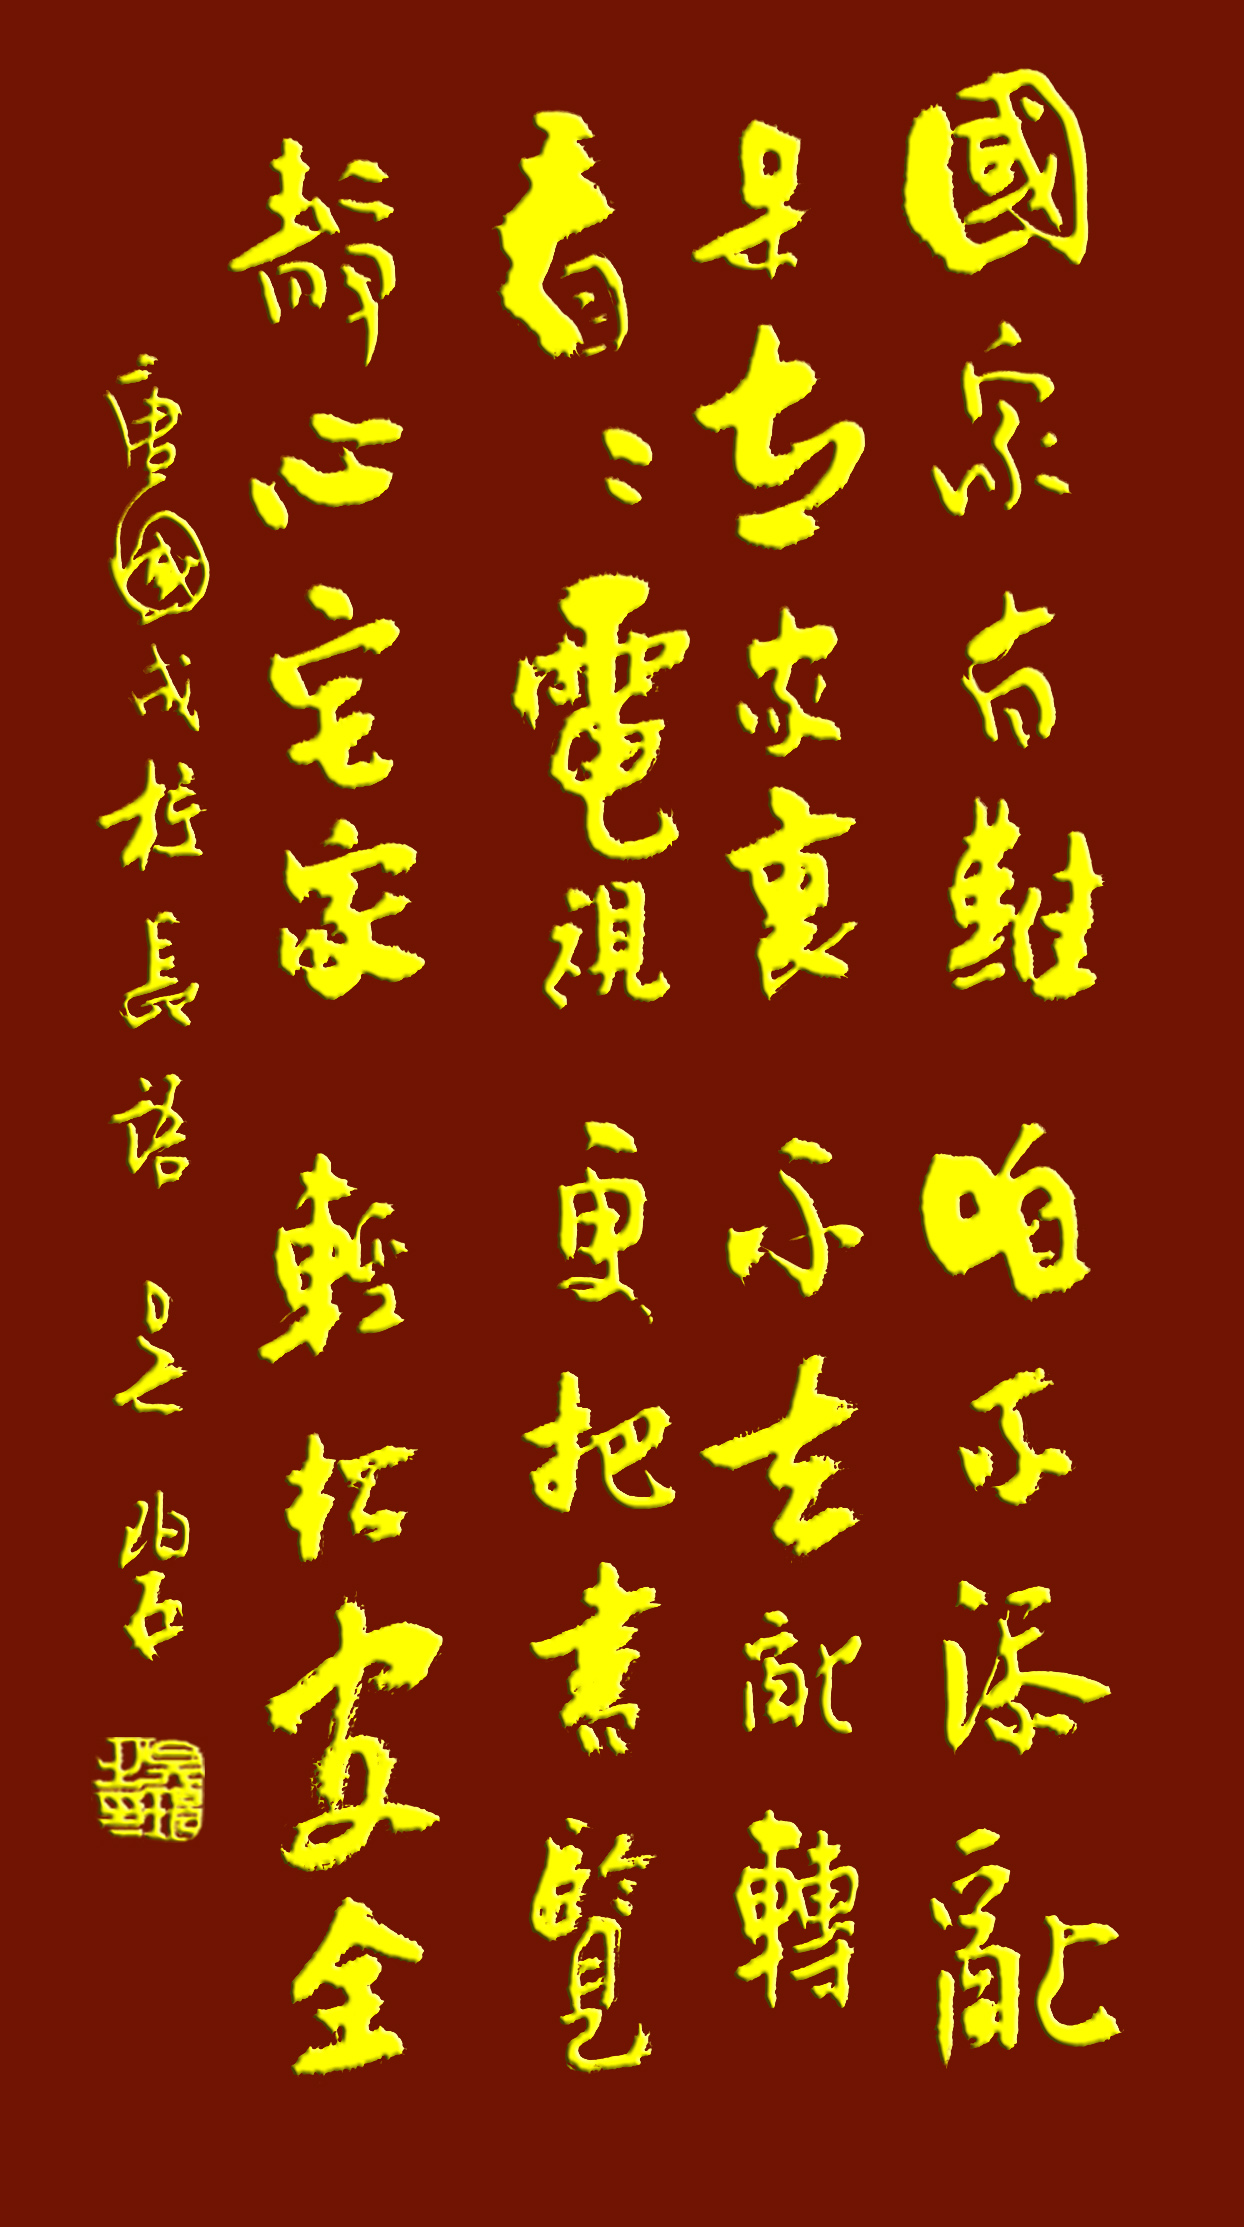 國家有難 咱不添亂
呆在家裏 不去亂轉
看〻電視 更把書覽
靜心宅家 輕松安全
唐國成校長語 碧